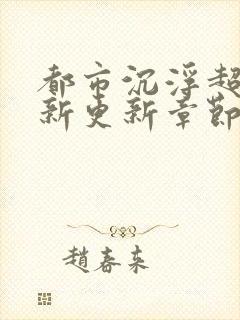 都市沉浮超
新更新章節
趙春來